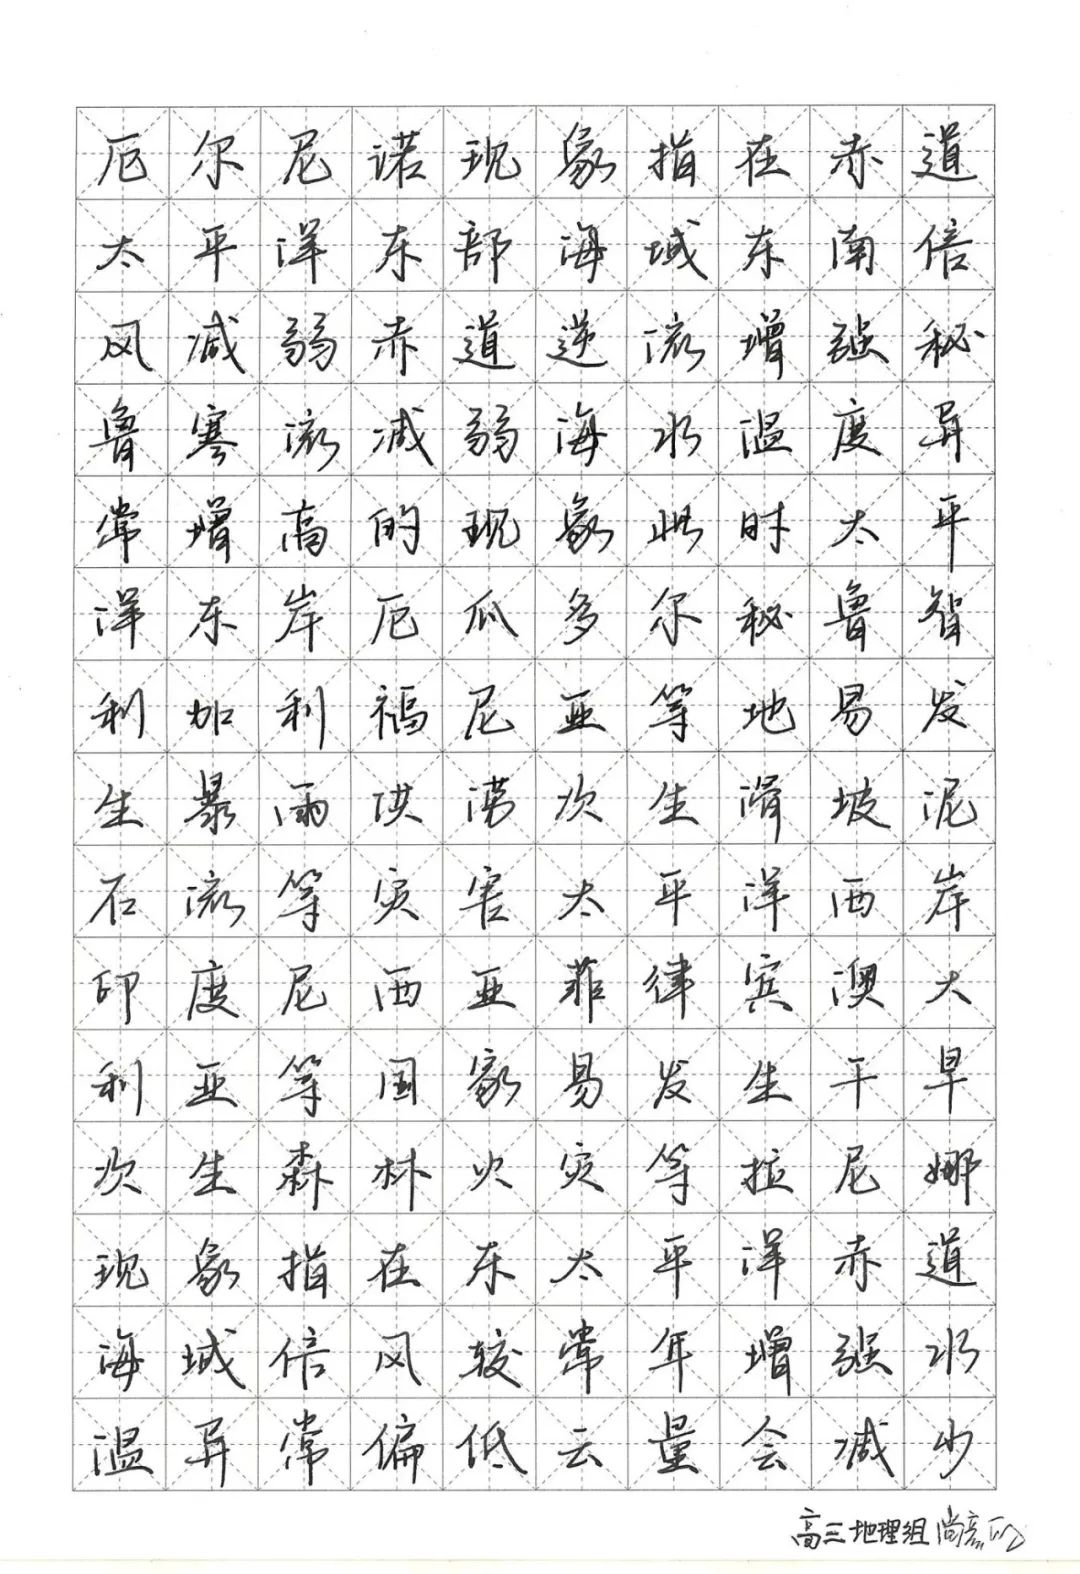 厄尔尼诺现象指在赤道
太平洋东部海域东南信
风减弱赤道逆流增强秘
鲁寒流减弱海水温度异
常增高的现象此时太平
洋东岸厄瓜多尔秘鲁智
利加利福尼亚等地易发
生暴雨洪涝次生滑坡泥
石流等灾害太平洋西岸
印度尼西亚菲律宾澳大
利亚等国家易发生干旱
次生森林火灾等拉尼娜
现象指在东太平洋赤道
海域信风较常年增强水
温异常偏低云量会减少
高三地理组